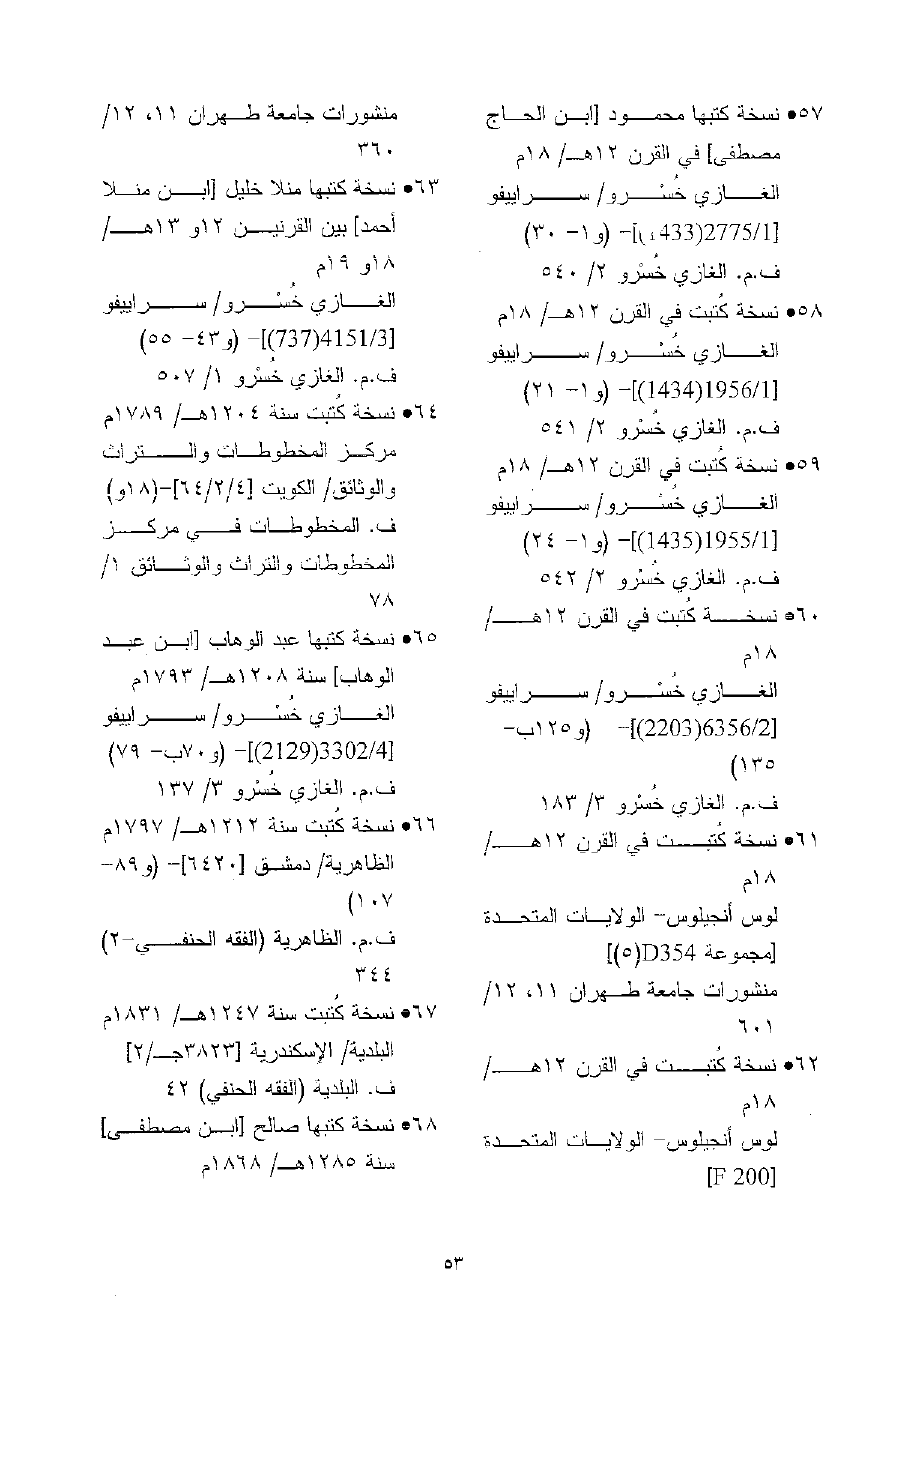 ٥٧• نسخة كتبها محمود [ابن الحاج
مصطفى] في القرن ١٢هـ/ ١٨م
الغازي خُسْرو/ سراييفو
[2775/1(433)]- (و١- ٣٠)
ف.م. الغازي خُسْرو ٢/ ٥٤٠
٥٨• نسخة كُتبت في القرن ١٢هـ/ ١٨م
الغازي خُسْرو/ سراييفو
[1956/1(1434)]- (و١- ٢١)
ف.م. الغازي خُسْرو ٢/ ٥٤١
٥٩• نسخة كُتبت في القرن ١٢هـ/ ١٨م
الغازي خُسْرو/ سراييفو
[1955/1(1435)]- (و١- ٢٤)
ف.م. الغازي خُسْرو ٢/ ٥٤٢
٦٠• نسخة كُتبت في القرن ١٢هـ/
١٨م
الغازي خُسْرو/ سراييفو
[6356/2(2203)]- (و١٢٥ب-
١٣٥)
ف.م. الغازي خُسْرو ٣/ ١٨٣
٦١• نسخة كُتبت في القرن ١٢هـ/
١٨م
لوس أنجيلوس- الولايات المتحدة
[مجموعة D354(٥)]
منشورات جامعة طهران ١١، ١٢/
٦٠١
٦٢• نسخة كُتبت في القرن ١٢هـ/
١٨م
لوس أنجيلوس- الولايات المتحدة
[F 200]
منشورات جامعة طهران ١١، ١٢/
٣٦٠
٦٣• نسخة كتبها منلا خليل [ابن منلا
أحمد] بين القرنين ١٢و ١٣هـ/
١٨و ١٩م
الغازي خُسْرو/ سراييفو
[4151/3(737)]- (و٤٣- ٥٥)
ف.م. الغازي خُسْرو ١/ ٥٠٧
٦٤• نسخة كُتبت سنة ١٢٠٤هـ/ ١٧٨٩م
مركز المخطوطات والتراث
والوثائق/ الكويت [٦٤/٢/٤]-(١٨و)
ف. المخطوطات في مركز
المخطوطات والتراث والوثائق ١/
٧٨
٦٥• نسخة كتبها عبد الوهاب [ابن عبد
الوهاب] سنة ١٢٠٨هـ/ ١٧٩٣م
الغازي خُسْرو/ سراييفو
[3302/4(2129)]- (و٧٠ب- ٧٩)
ف.م. الغازي خُسْرو ٣/ ١٣٧
٦٦• نسخة كُتبت سنة ١٢١٢هـ/ ١٧٩٧م
الظاهرية/ دمشق [٦٤٢٠]- (و٨٩-
١٠٧)
ف.م. الظاهرية (الفقه الحنفي-٢)
٣٤٤
٦٧• نسخة كُتبت سنة ١٢٤٧هـ/ ١٨٣١م
البلدية/ الإسكندرية [٣٨٢٣جـ/٢]
ف. البلدية (الفقه الحنفي) ٤٢
٦٨• نسخة كتبها صالح [ابن مصطفى]
سنة ١٢٨٥هـ/ ١٨٦٨م
٥٣